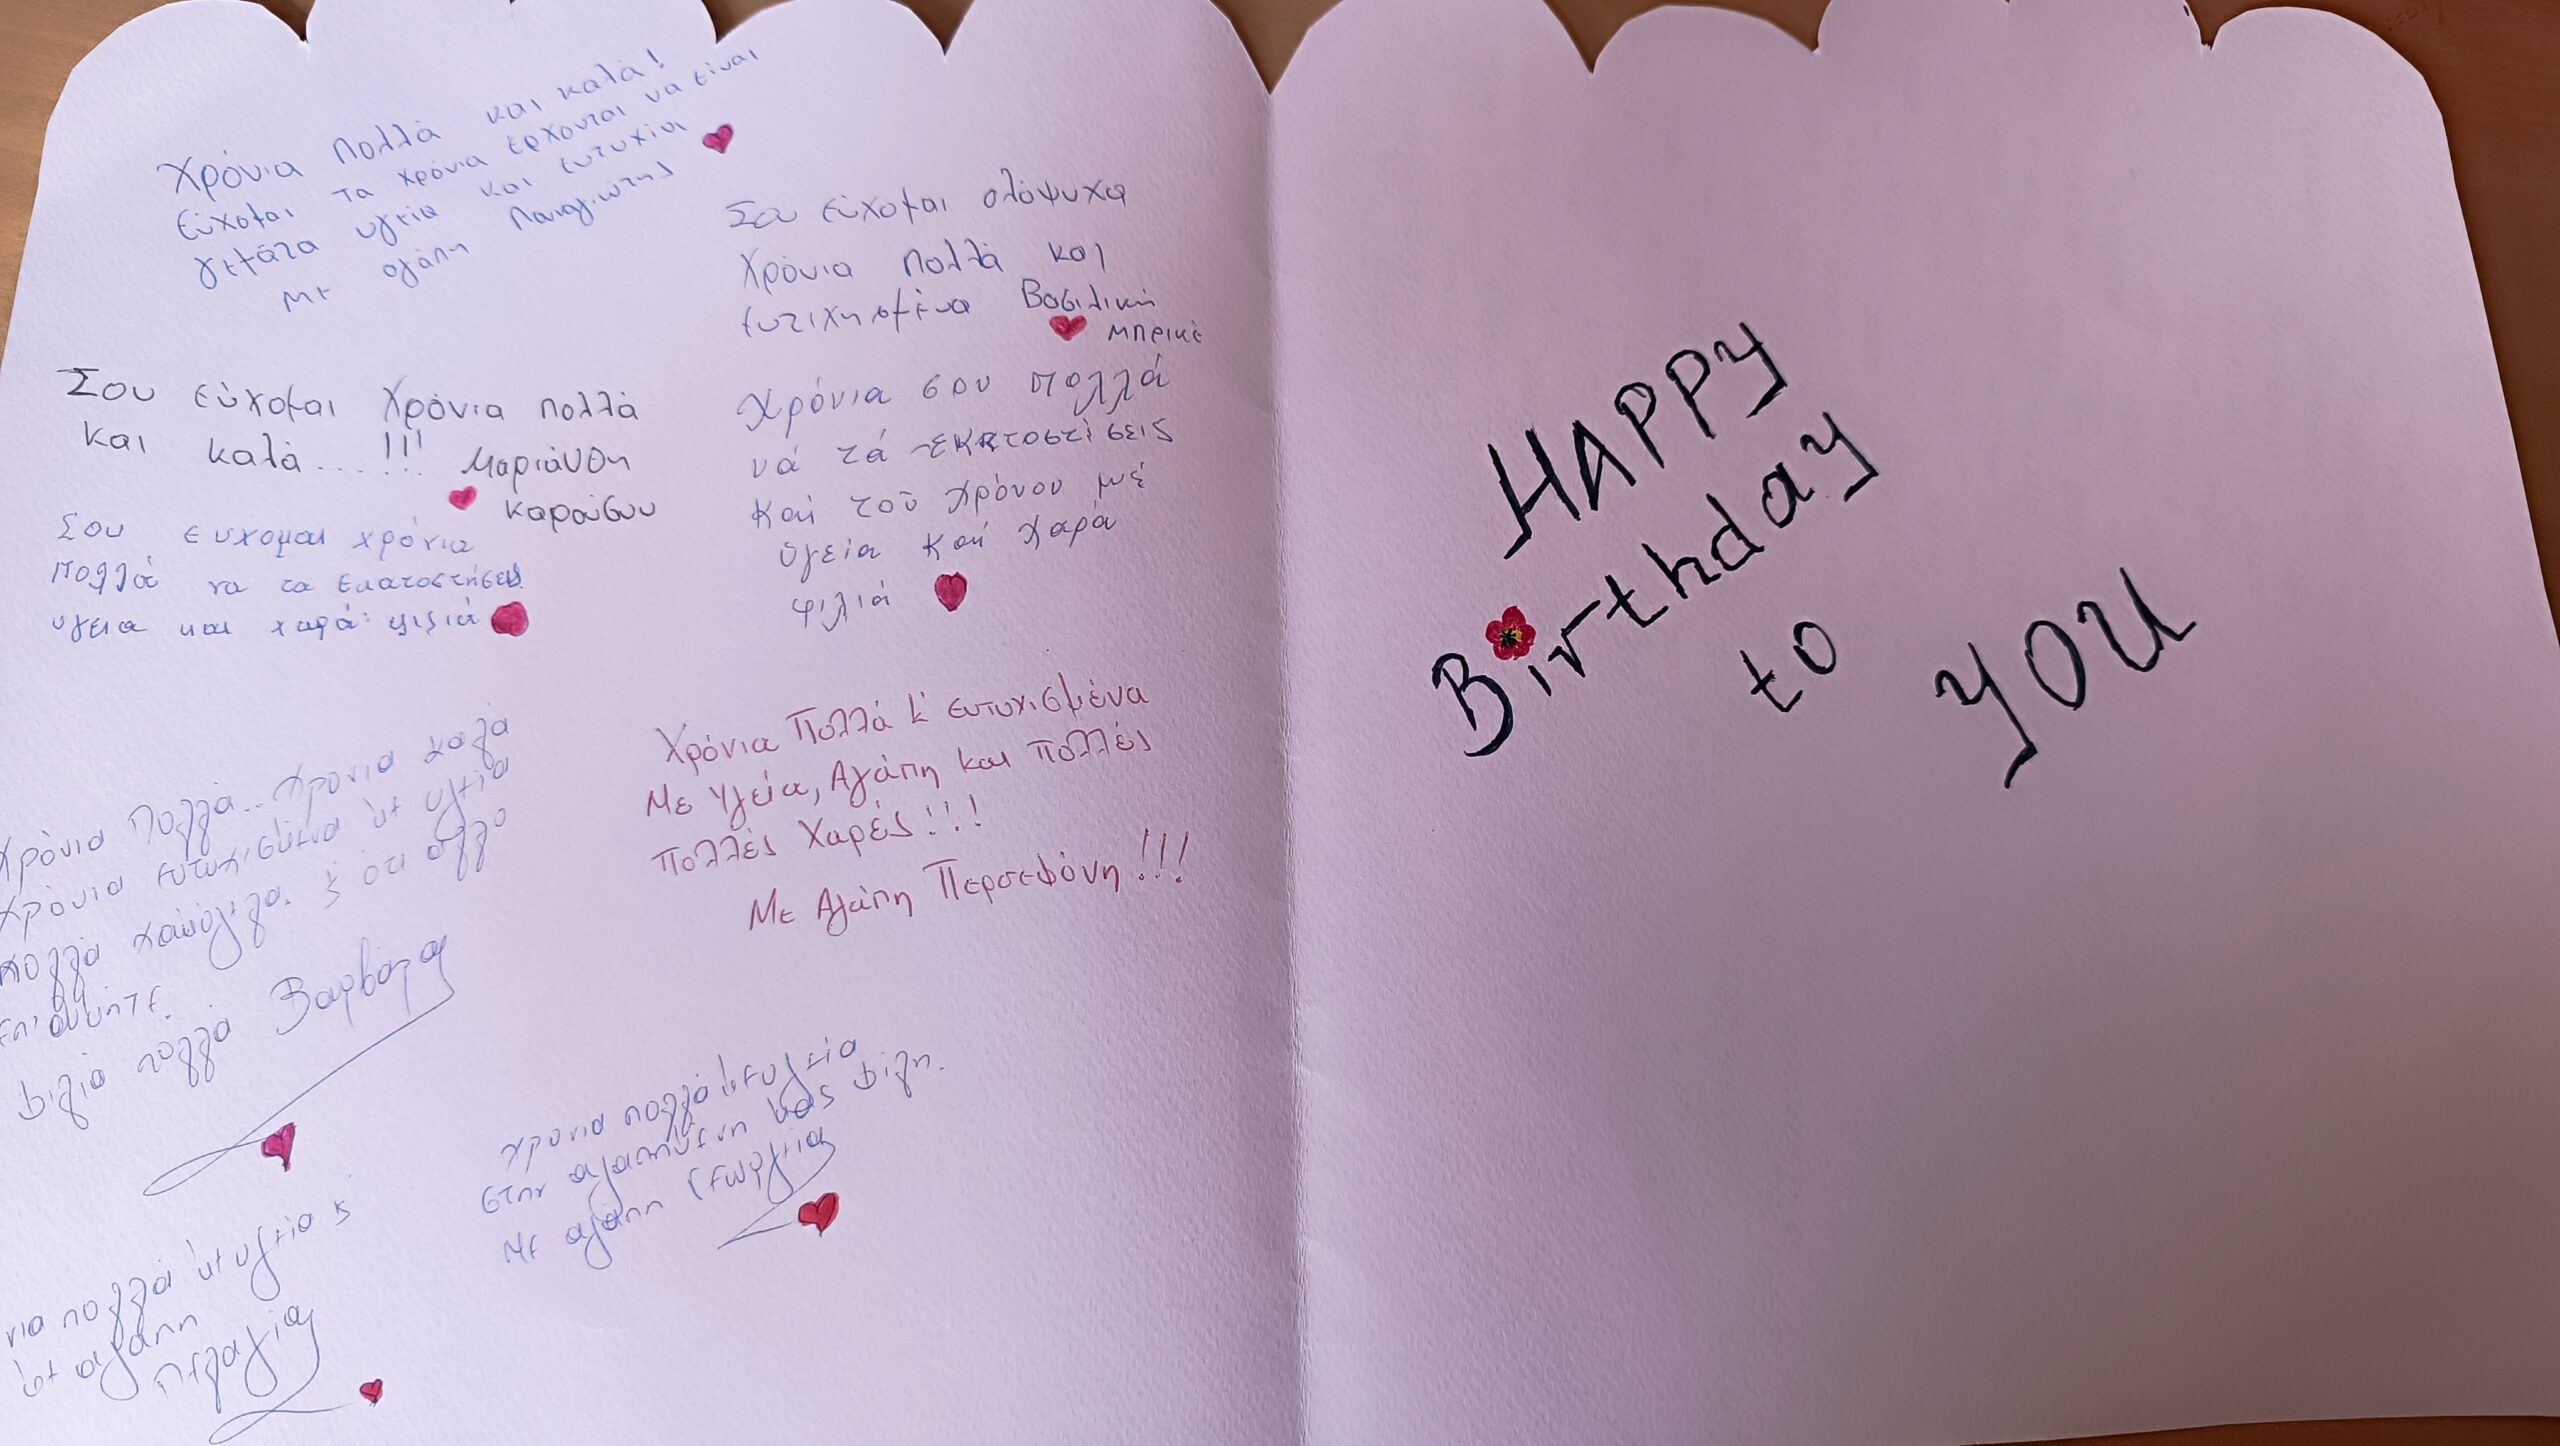 Χρόνια πολλά και καλά!
Εύχομαι τα χρόνια έρχονται να είναι
γεμάτα υγεία και ευτυχία
με αγάπη Παναγιώτης
Σου εύχομαι ολόψυχα
Χρόνια πολλά και
ευτιχησμένα Βασιλική
Μπρικέ
Σου εύχομαι Χρόνια πολλά
και καλά...!!! Μαριάνθη
Καρούσου
Χρόνια σου πολλά
νά τά εκατοστίσεις
Καί τοῦ χρόνου μέ
ὑγεία καί χαρά
φιλιά
Σου ευχομαι χρόνια
πολλά να τα εκατοστήσεις
υγεια και χαρά φιλιά
Χρόνια Πολλά κ' ευτυχισμένα
Με Υγεία, Αγάπη και πολλές
πολλές Χαρές!!!
Με Αγάπη Περσεφόνη!!!
Χρόνια Πολλά.. χρονια καλα
χρόνια ευτυχισμένα με υγεία
πολλά χαμόγελα. κ ότι άλλο
επιθυμήτε.
Φιλιά πολλά Βαρβάρα
χρονια πολλά με υγεία
στην αγαπημένη μας φίλη.
Με αγάπη Γεωργία
νια πολλά με υγεία κ
με αγάπη
Πελαγία
HAPPY
Birthday
to
YOU